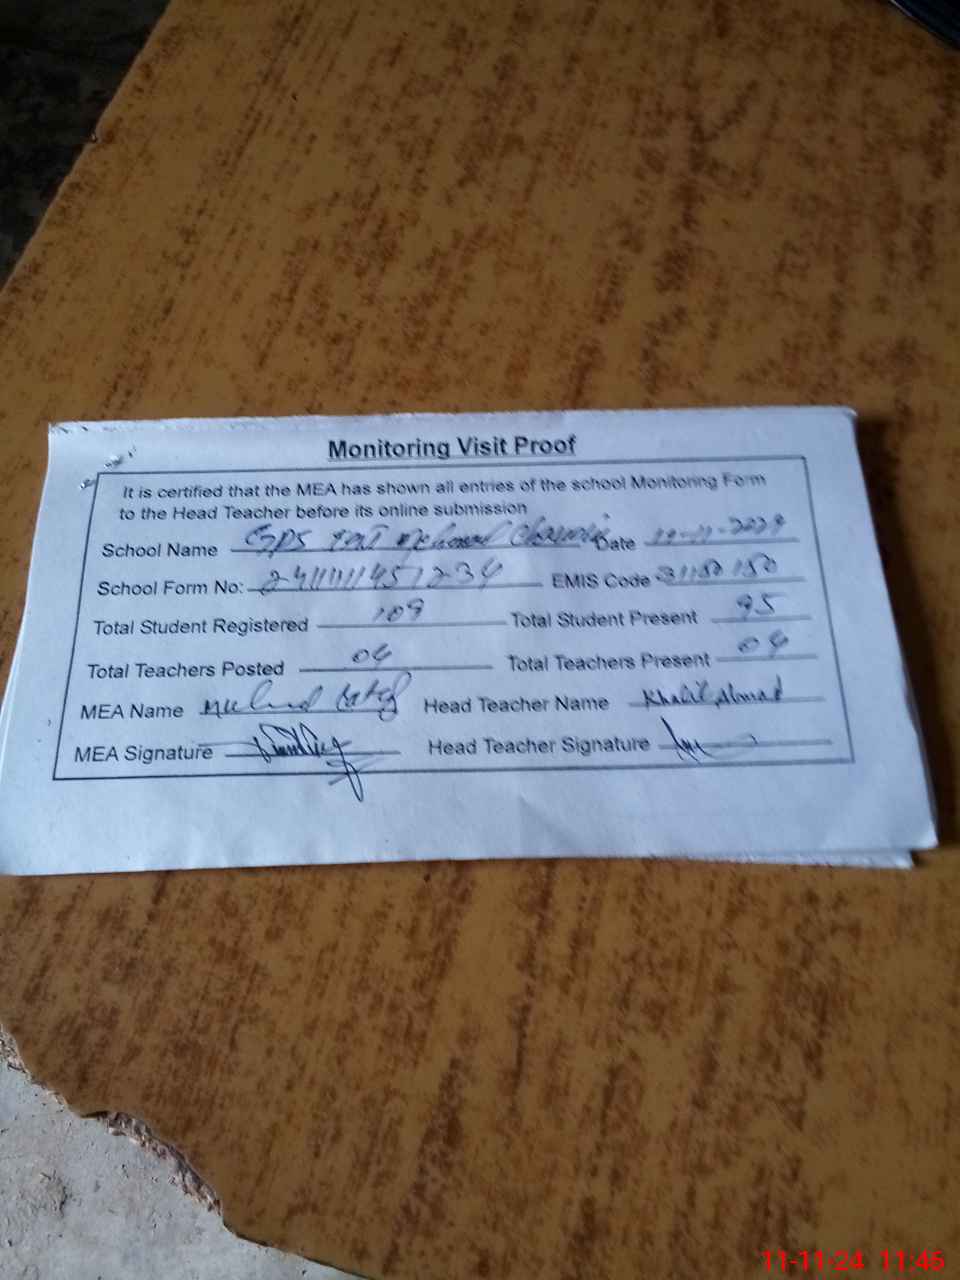 Monitoring Visit Proof
It is certified that the MEA has shown all entries of the school Monitoring Form
to the Head Teacher before its online submission
School Name GPS Date
School Form No: EMIS Code 31150150
Total Student Registered 109 Total Student Present 95
Total Teachers Posted 04 Total Teachers Present 04
MEA Name Head Teacher Name Khalil Ahmad
MEA Signature Head Teacher Signature
11-11-24 11:46